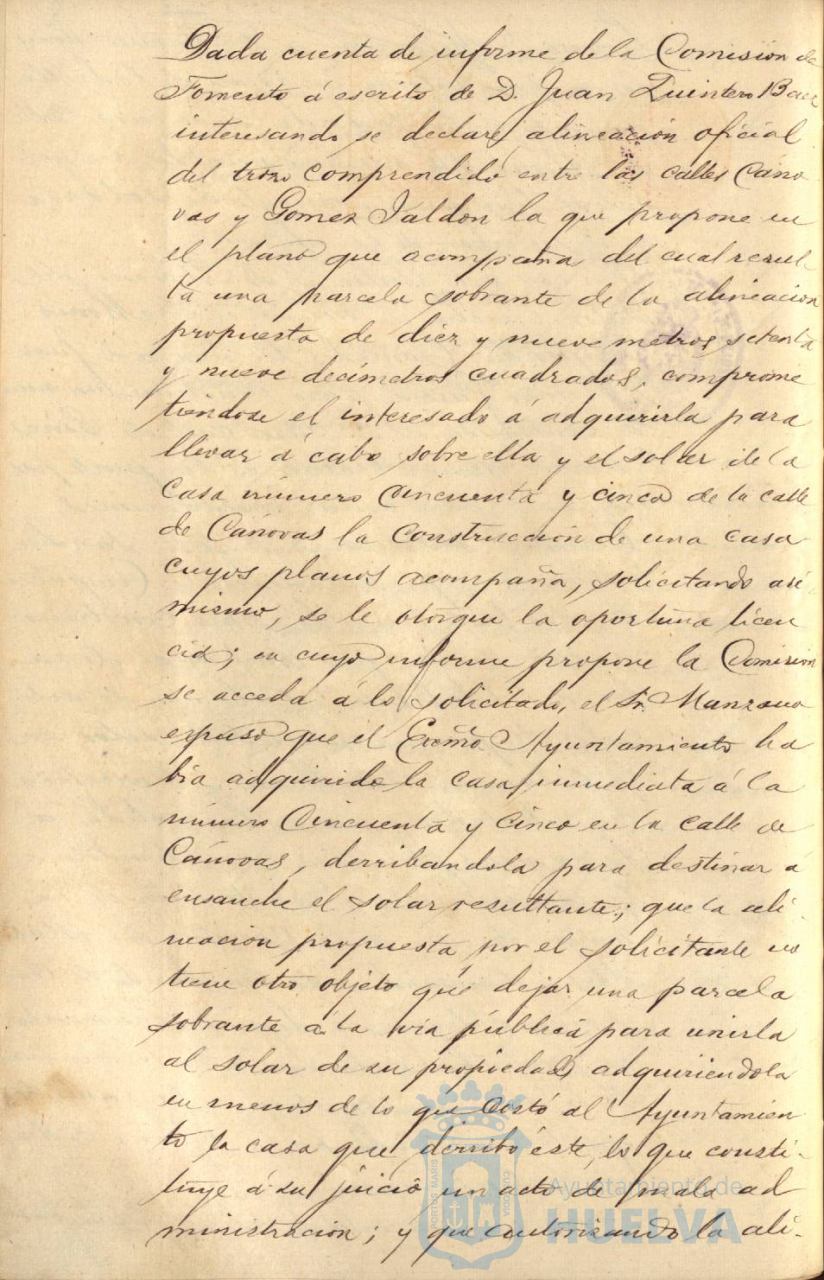 Dada cuenta de informe de la Comisión de
Fomento á escrito de D. Juan Quintero Baez
interesando se declare alineación oficial
del trozo comprendido entre las calles Cáno
vas y Gomez Jaldon la que propone en
el plano que acompaña del cual resul-
ta una parcela sobrante de la alineación
propuesta de diez y nueve metros, setenta
y nueve decímetros cuadrados, comprome
tiéndose el interesado á adquirirla para
llevar á cabo sobre ella y el solar de la
casa número cincuenta y cinco de la calle
de Cánovas la construcción de una casa
cuyos planos acompaña, solicitando asi
mismo, se le otorgue la oportuna licen
cia; en cuyo informe propone la Comisión
se acceda á lo solicitado, el Sr. Manzano
expuso que el Excmo. Ayuntamiento ha
bia adquirido la casa inmediata á la
número Cincuenta y Cinco en la calle de
Cánovas, derribandola para destinar á
ensanche el solar resultante; que la ali-
neacion propuesta por el solicitante no
tiene otro objeto que dejar una parcela
sobrante a la via pública para unirla
al solar de su propiedad adquiriendola
en menos de lo que costó al Ayuntamien-
to la casa que derribó éste, lo que consti-
tuye á su juicio un acto de mala ad
ministracion; y que autorizando la ali-
Ayuntamiento de
HUELVA